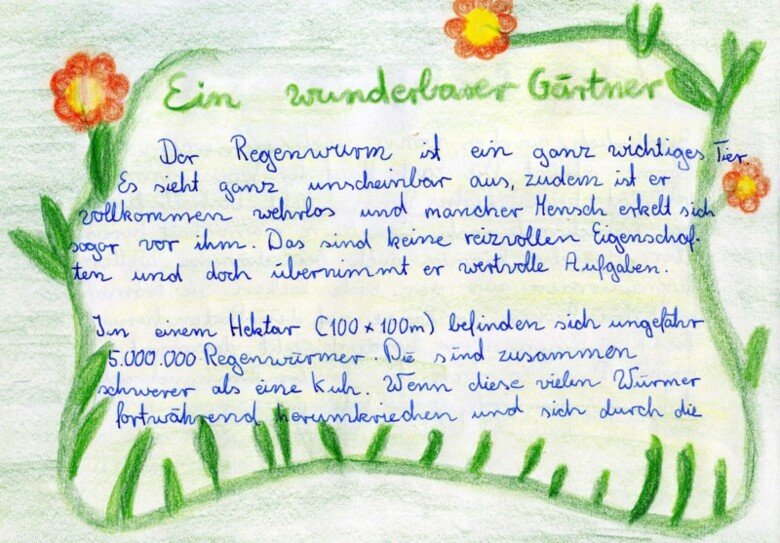 Ein wunderbarer Gärtner
Der Regenwurm ist ein ganz wichtiges Tier.
Es sieht ganz unscheinbar aus, zudem ist er
vollkommen wehrlos und mancher Mensch erkelt sich
sogar vor ihm. Das sind keine reizvollen Eigenschaf-
ten und doch übernimmt er wertvolle Aufgaben.
In einem Hektar (100 x 100m) befinden sich ungefähr
5.000.000 Regenwürmer. Die sind zusammen
schwerer als eine Kuh. Wenn diese vielen Würmer
fortwährend herumkriechen und sich durch die